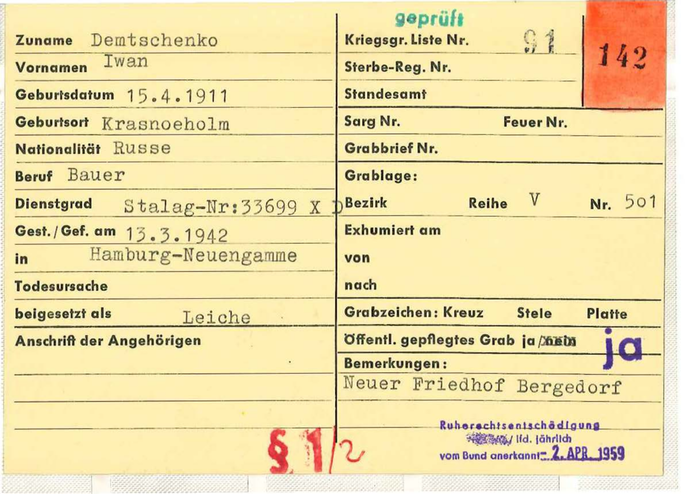 geprüft
Zuname Demtschenko
Vornamen Iwan
Geburtsdatum 15.4.1911
Geburtsort Krasnoeholm
Nationalität Russe
Beruf Bauer
Dienstgrad Stalag-Nr:33699 X D
Gest./Gef. am 13.3.1942
in Hamburg-Neuengamme
Todesursache
beigesetzt als Leiche
Anschrift der Angehörigen
§ 1/2
Kriegsgr. Liste Nr. 91
142
Sterbe-Reg. Nr.
Standesamt
Sarg Nr. Feuer Nr.
Grabbrief Nr.
Grablage:
Bezirk Reihe V Nr. 501
Exhumiert am
von
nach
Grabzeichen: Kreuz Stele Platte
Öffentl. gepflegtes Grab ja/nein ja
Bemerkungen:
Neuer Friedhof Bergedorf
Ruherechtsentschädigung
/ lfd. jährlich
vom Bund anerkannt - 2. APR. 1959